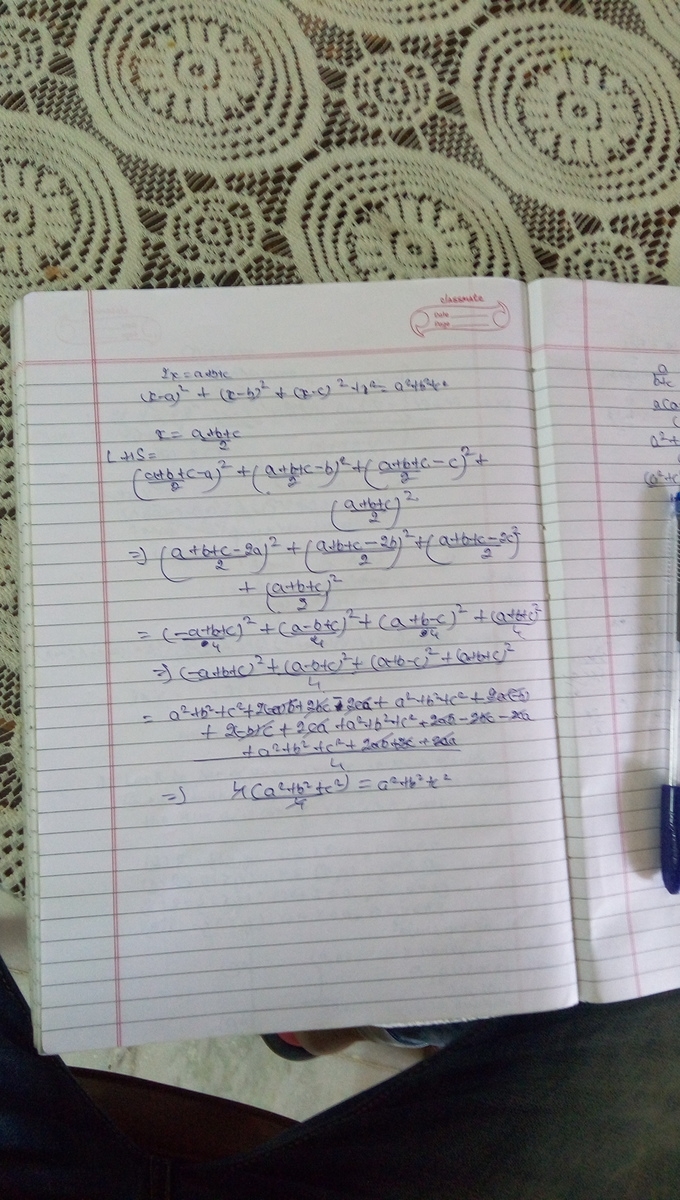 classmate
Date
Page
2x = a+b+c
(x-a)² + (x-b)² + (x-c)² + x² = a²+b²+c²
x = a+b+c/2
LHS =
(a+b+c/2 - a)² + (a+b+c/2 - b)² + (a+b+c/2 - c)² +
(a+b+c/2)²
=> (a+b+c-2a/2)² + (a+b+c-2b/2)² + (a+b+c-2c/2)²
+ (a+b+c/2)²
= (-a+b+c)²/4 + (a-b+c)²/4 + (a+b-c)²/4 + (a+b+c)²/4
=> (-a+b+c)² + (a-b+c)² + (a+b-c)² + (a+b+c)²/4
= a²+b²+c²+2(-a)b+2bc-2ca + a²+b²+c² + 2a(-b)
+ 2(-b)c + 2ca + a²+b²+c² + 2ab - 2bc - 2ca
+ a²+b²+c² + 2ab + 2bc + 2ca
4
=> 4(a²+b²+c²)/4 = a²+b²+c²
a
b+c
a²+